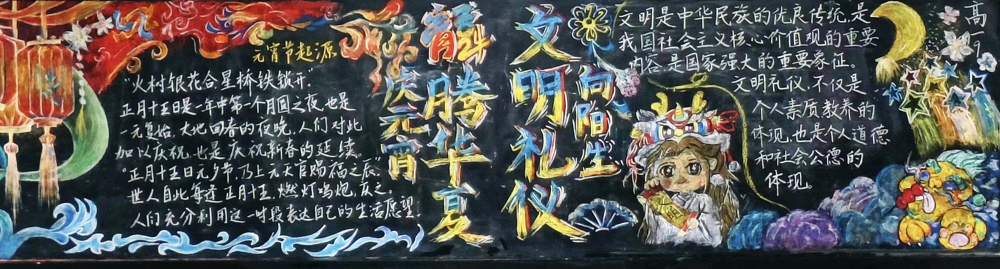 元宵节起源
“火树银花合,星桥铁锁开”
正月十五日是一年中第一个月圆之夜,也是
一元复始,大地回春的夜晚,人们对此
加以庆祝,也是庆祝新春的延续。
“正月十五日元夕节,乃上元天官赐福之辰”。
世人自此每逢正月十五,燃灯鸣炮,庆之。
人们充分利用这一时段表达自己的生活愿望。
龙腾华夏
庆元宵
文明礼仪
向阳生
文明是中华民族的优良传统,是
我国社会主义核心价值观的重要
内容,是国家强大的重要象征。
文明礼仪,不仅是
个人素质教养的
体现,也是个人道德
和社会公德的
体现
高一